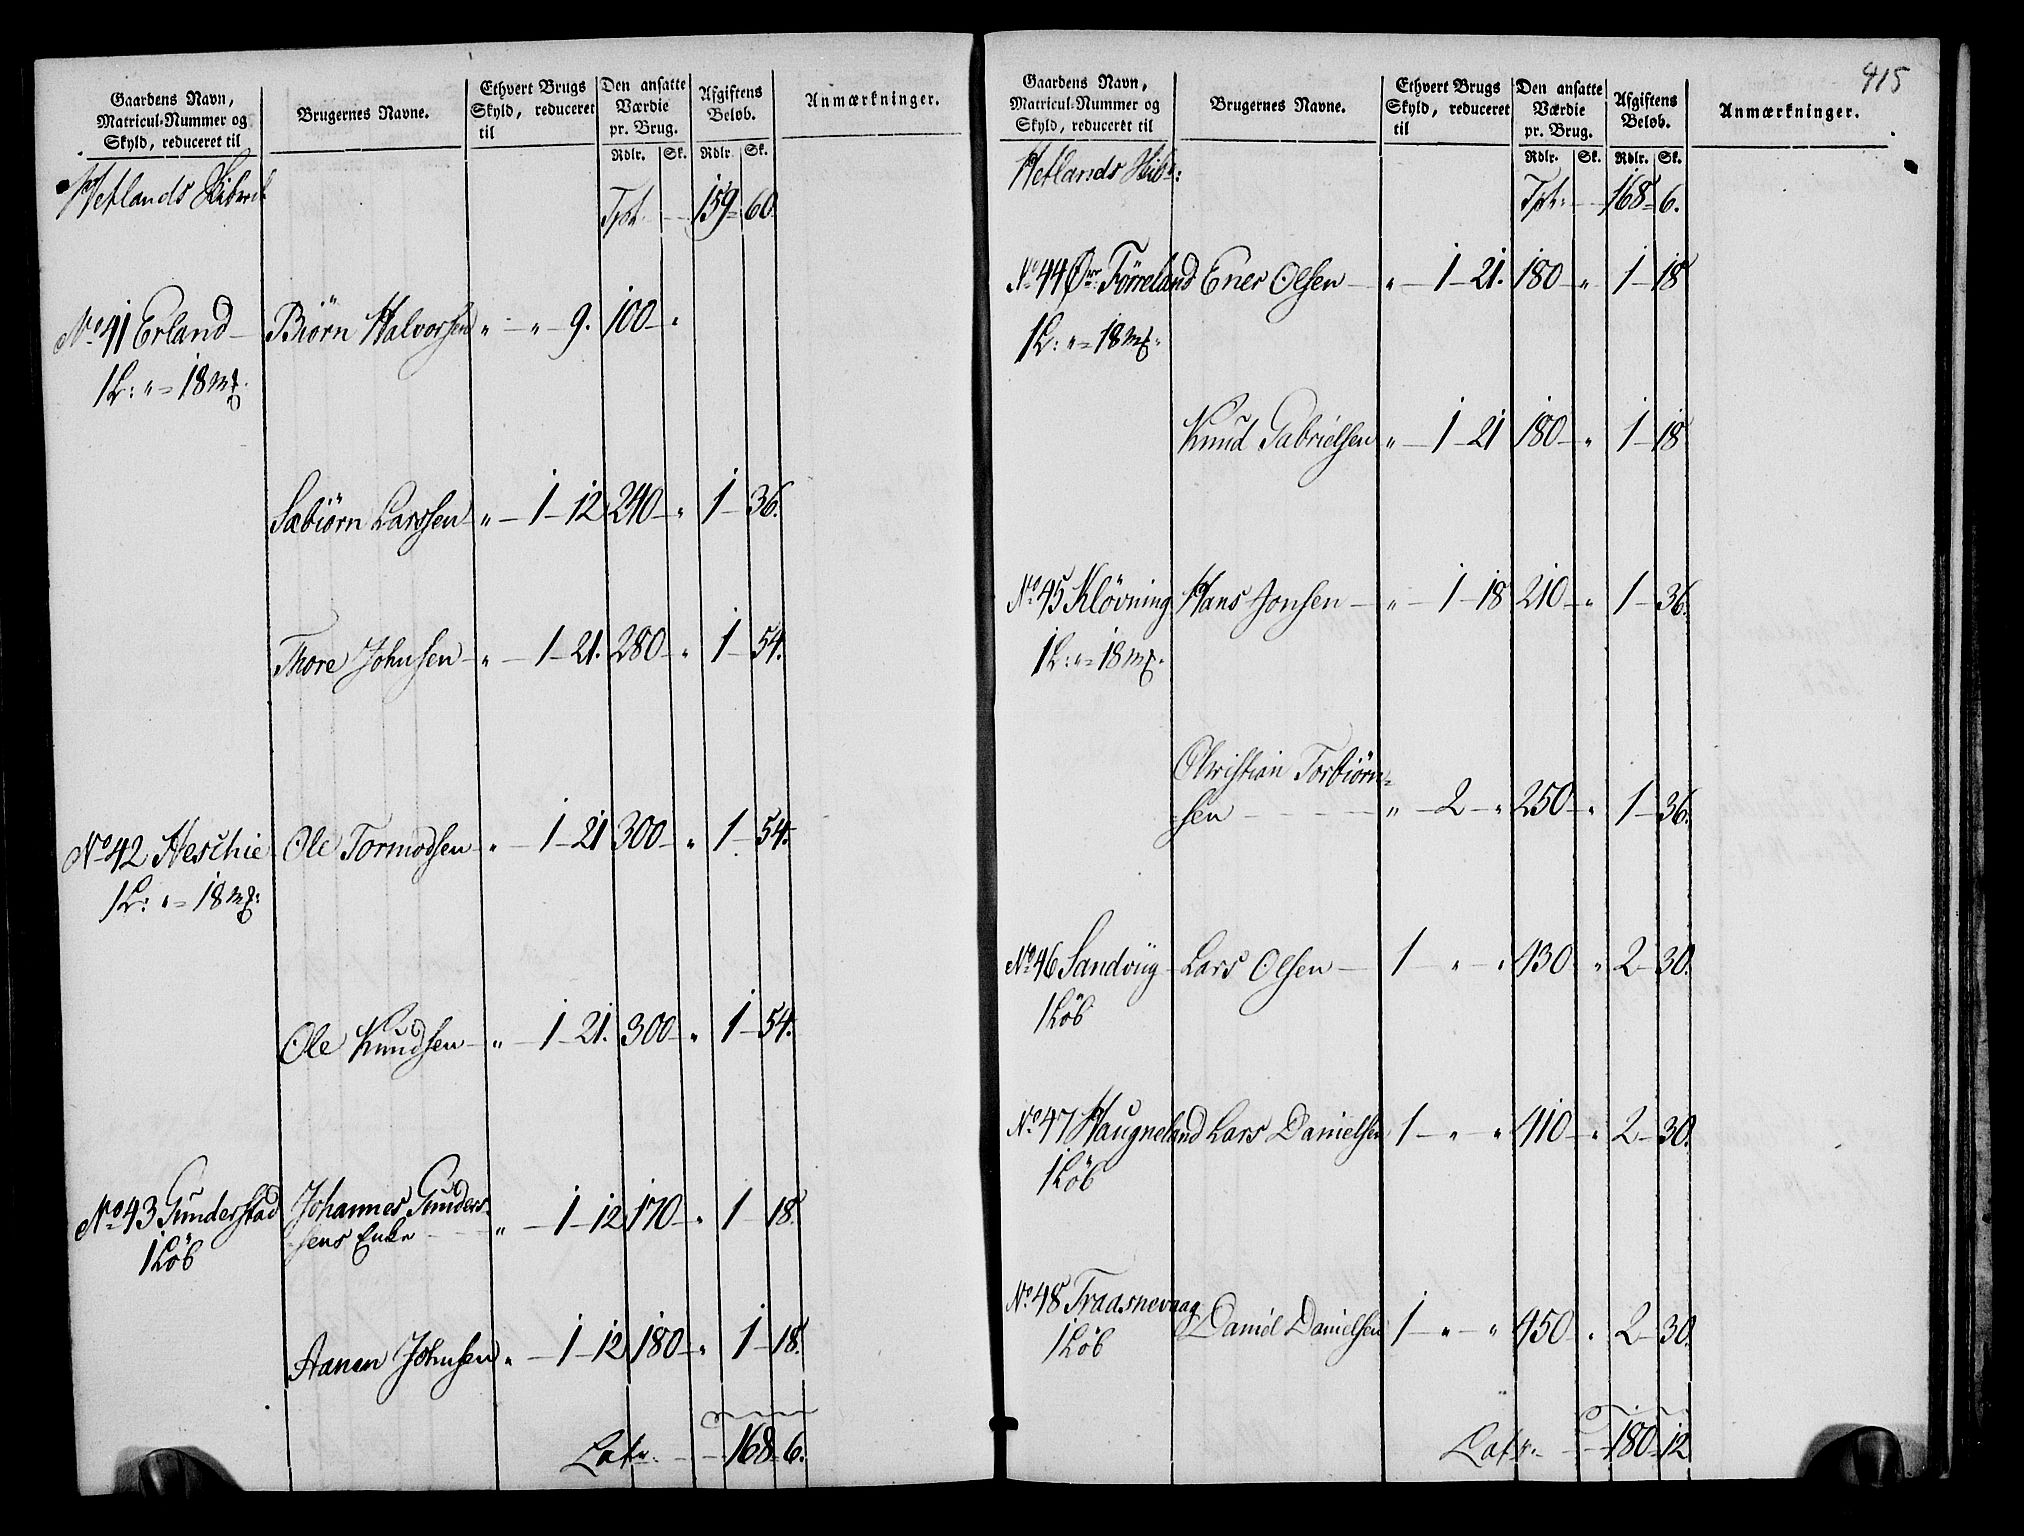 Gaardens Navn, Matricul-Nummer og Skyld, reduceret til | Brugernes Navne. | Ethvert Brugs Skyld, reduceret til | Den ansatte Værdie pr. Brug. | Afgiftens Beløb. | Anmærkninger.
Rdlr. Sk. Rdlr. Sk.
Hetlands
Tpt. — 159 60.
No 41 Erland — Biörn Halvorsen " — " — 9. 100 — "
1 L: " = 18 mk.
Sæbiörn Larssen — " — 1 — 12 240 — " 1 — 36.
Thore Johnsen — " — 1 — 21. 280 — " 1 — 54.
No 42 Aeschie Ole Tormodsen — " — 1 — 21 300 — " 1 — 54.
1 L: " = 18 mk:
Ole Knudsen — " — 1 — 21. 300 — " 1 — 54.
No 43 Gunderstad Johannes Gunders-
sens Enke — " — 1 — 12 170 — " 1 — 18.
1 Löb
Aanen Johnsen " — 1 — 12 180 — " 1 — 18.
Latr. — 168 6.
415
Gaardens Navn, Matricul-Nummer og Skyld, reduceret til | Brugernes Navne. | Ethvert Brugs Skyld, reduceret til | Den ansatte Værdie pr. Brug. | Afgiftens Beløb. | Anmærkninger.
Rdlr. Sk. Rdlr. Sk.
Hetlands Skib:
Tpt. — 168 6.
No 44 Ör Förreland Ener Olsen — " — 1 — 21. 180 — " 1 — 18
1 L: " = 18 mk.
Knud Gabrielsen " — 1 — 21 180 — " 1 — 18
No 45 Klövning Hans Jonsen — " — 1 — 18 210 — " 1 — 36.
1 L: " = 18 mk.
Christian Torbiörn=
sen — " — 2 — " 250 — " 1 — 36.
No 46 Sandviig — Lars Olsen — 1 " " 430 " 2 — 30.
1 Löb
No 47 Haugneland Lars Danielsen 1 — " — " 410 — " 2 — 30.
1 Löb
No 48 Traasnevaag
Daniel Danielsen 1 — " — " 450 " 2 — 30.
1 Löb
Latr. — 180 12